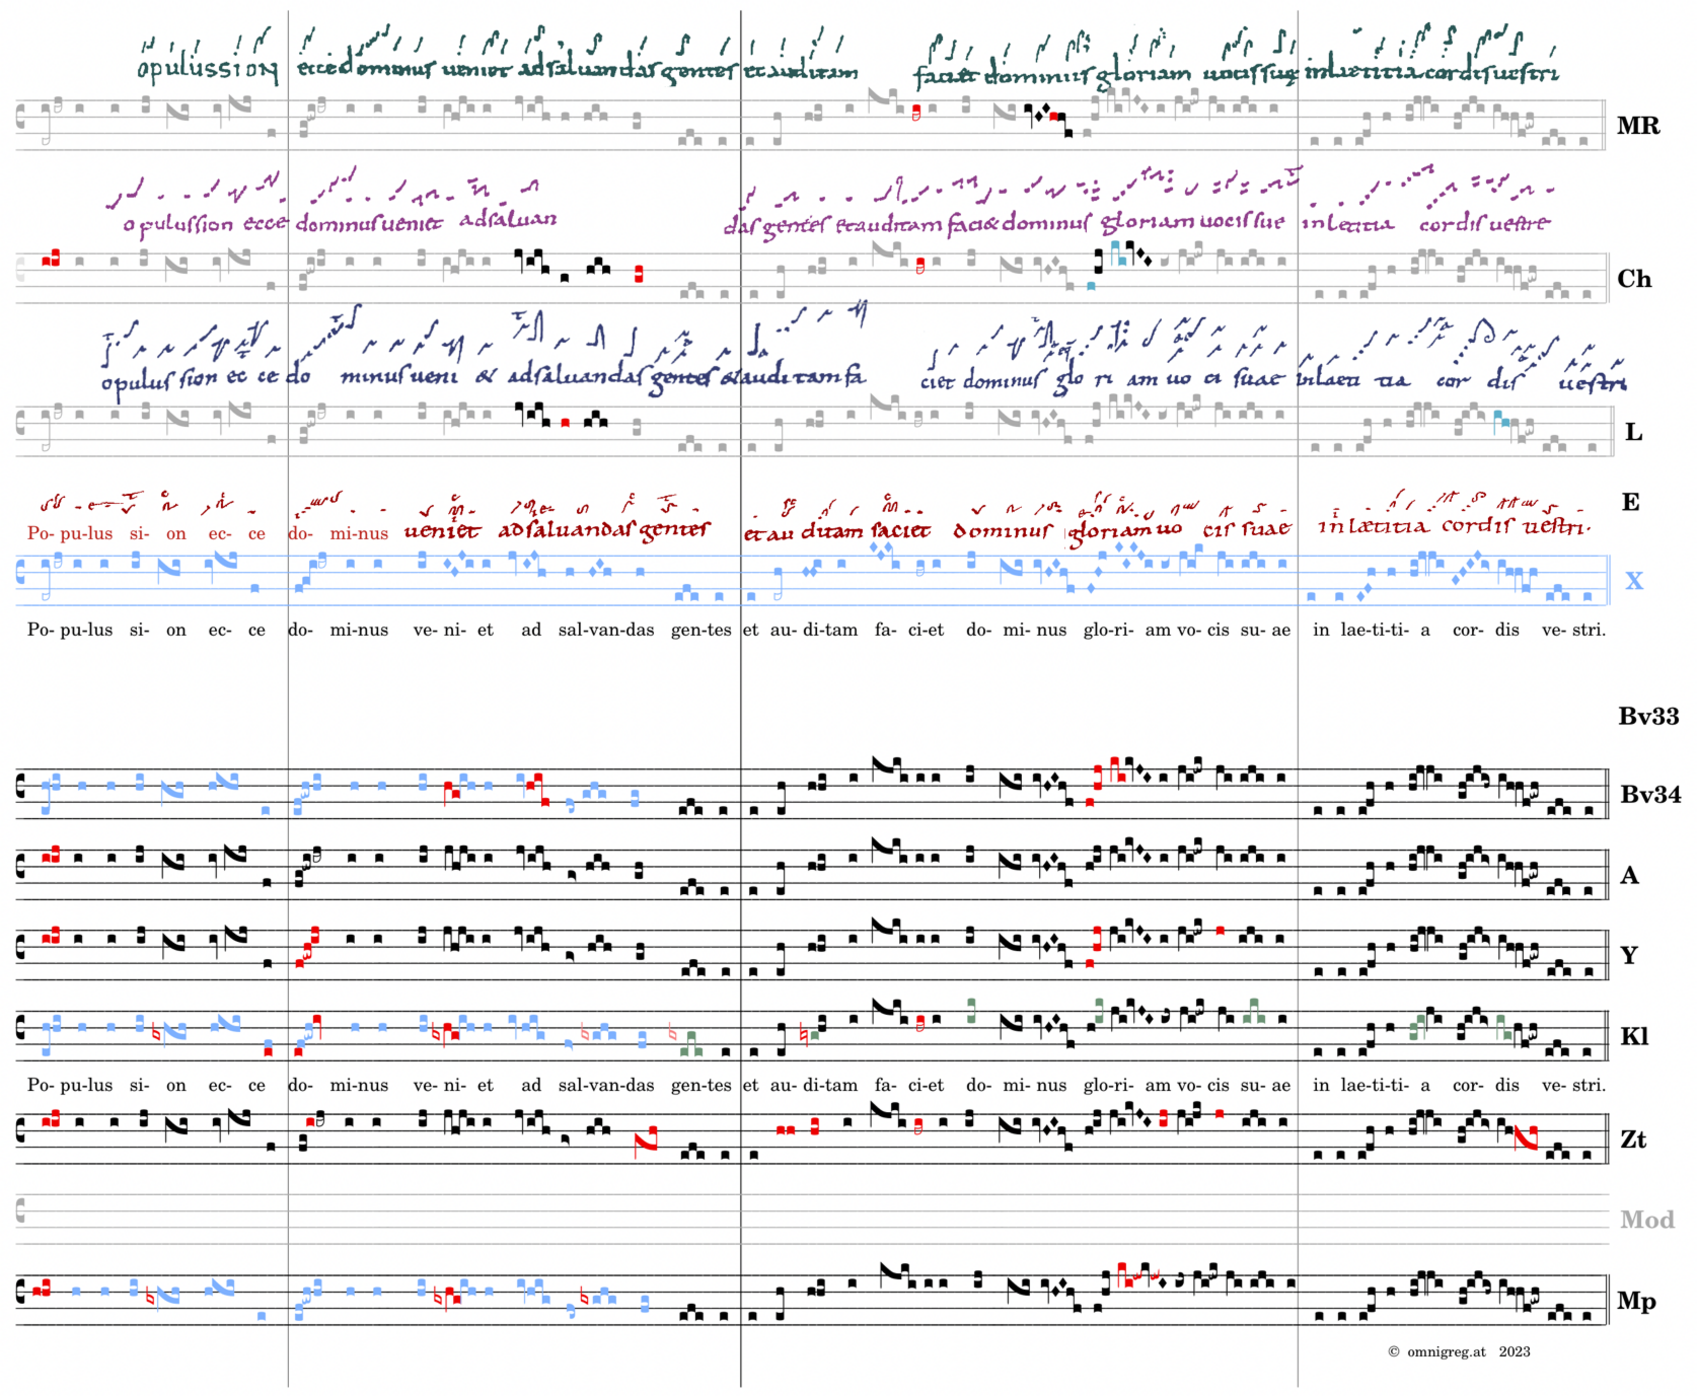 opulussion ecce dominus ueniet ad saluandas gentes et auditam faciet dominus gloriam uocis suę in laetitia cordis uestri
MR
opulussion ecce dominus ueniet ad saluan das gentes et auditam faci& dominus gloriam uocis sue in letitia cordis uestre
Ch
opulus sion ec ce do minus ueni & ad saluandas gentes & auditam fa ciet dominus glo ri am uo ci suae in laeti tia cor dis uestri
L
E
Po- pu-lus si- on ec- ce do- mi-nus ueniet ad saluandas gentes et au ditam faciet dominus gloriam uo cis suae in lætitia cordis uestri.
X
Po- pu-lus si- on ec- ce do- mi-nus ve- ni- et ad sal-van-das gen-tes et au- di-tam fa- ci-et do- mi- nus glo-ri- am vo- cis su- ae in lae-ti-ti- a cor- dis ve- stri.
Bv33
Bv34
A
Y
Kl
Po- pu-lus si- on ec- ce do- mi-nus ve- ni- et ad sal-van-das gen-tes et au- di-tam fa- ci-et do- mi- nus glo-ri- am vo- cis su- ae in lae-ti-ti- a cor- dis ve- stri.
Zt
Mod
Mp
© omnigreg.at 2023